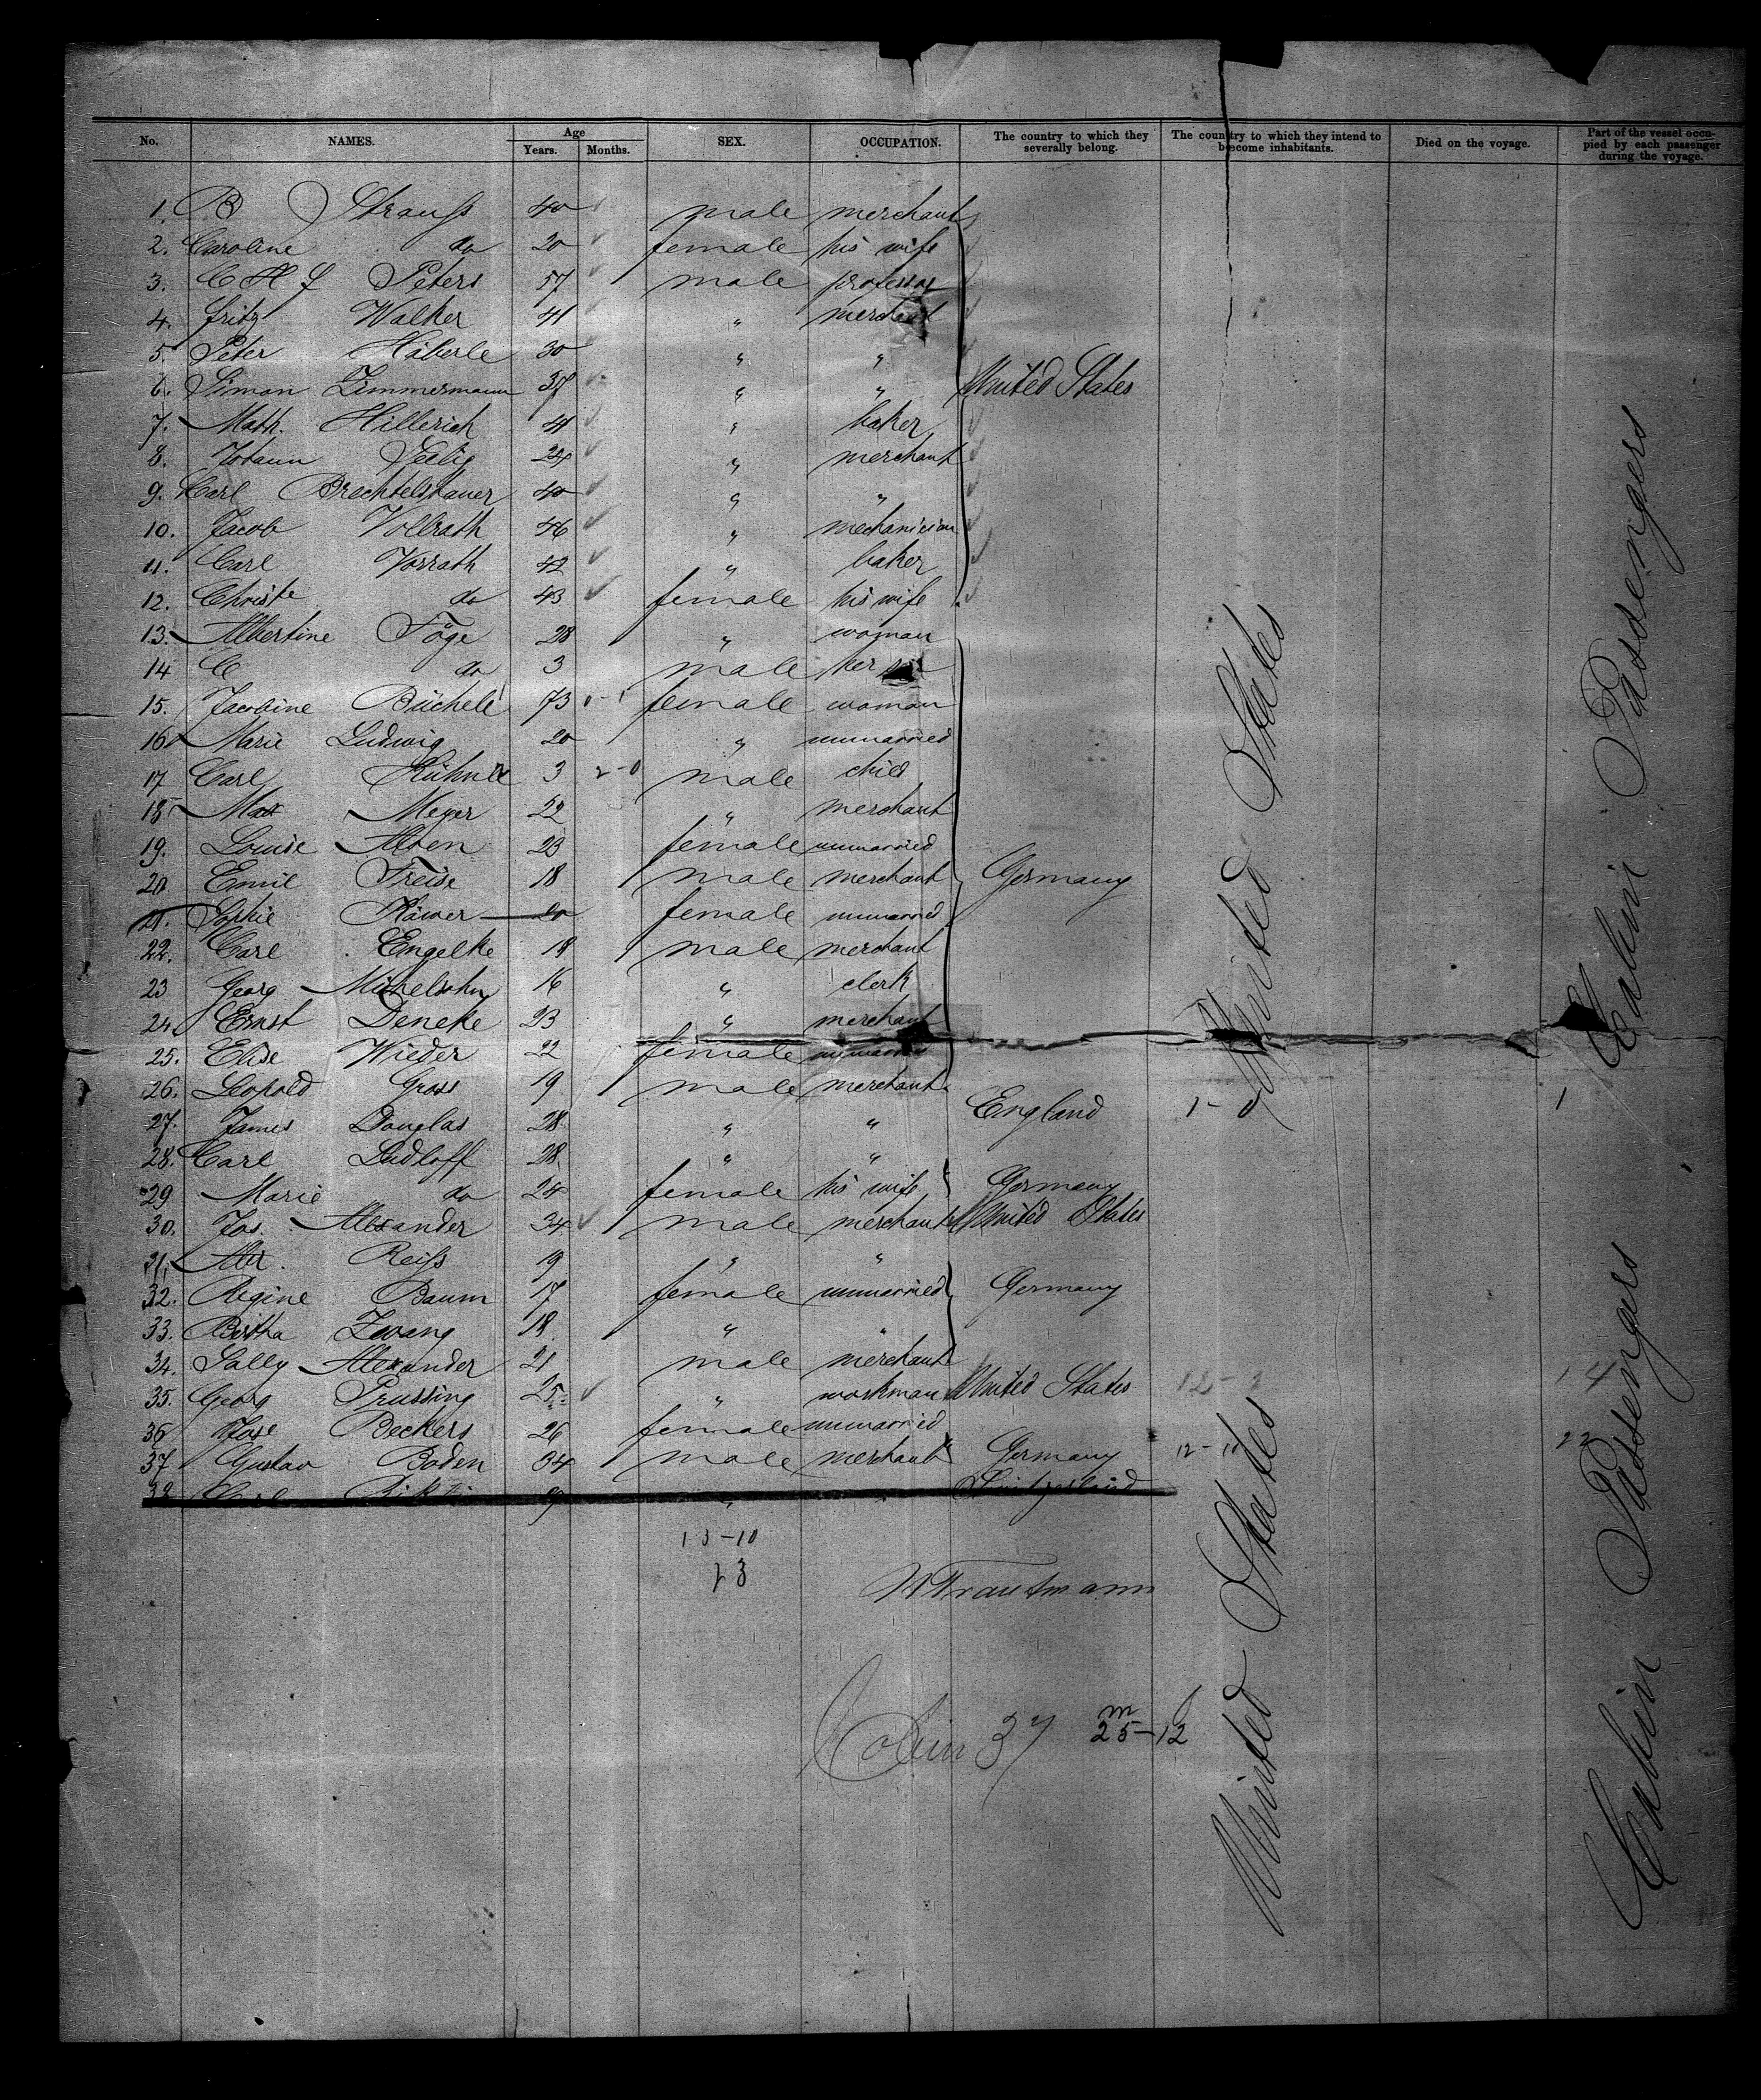 No. NAMES. Age Years. Months. SEX. OCCUPATION. The country to which they severally belong. The country to which they intend to become inhabitants. Died on the voyage. Part of the vessel occupied by each passenger during the voyage.
1. B Strauss 40 male merchant
2. Caroline do 20 female his wife
3. C H F Peters 57 male professor
4. Fritz Walker 41 " merchant
5. Peter Häberle 30 " "
6. Simon Zimmermann 37 " " United States
7. Math. Hillerich 41 " baker
8. Johann Seelig 24 " merchant
9. Carl 40 " "
10. Jacob Vollrath 46 " mechanician
11. Carl Vorrath 42 " baker
12. Christe do 43 female his wife
13. Albertine Töge 28 " woman
14 C do 3 male her
15. Jacobine Büchele 73 female woman
16 Marie Ludwig 20 " unmarried
17 Carl Kühnle 3 male child
18 Max Meyer 22 " merchant
19. Louise Alten 23 female unmarried
20 Emil Freise 18 male merchant Germany
21. Sophie Käwer 20 female unmarried
22. Carl Engelke 18 male merchant
23 Georg Michelsohn 16 " clerk
24. Ernst Deneke 23 " merchant
25. Elise Wieder 22 female unmarried
26. Leopold Gross 19 male merchant
27. James Douglas 28 " " England 1-0 1
28. Carl Ludloff 28 " "
29 Marie do 24 female his wife Germany
30. Jos. Alexander 34 male merchant United States
31. Alex. Reiss 19 " "
32. Regine Baum 17 female unmarried Germany
33. Bertha Zwang 18 " "
34. Sally Alexander 21 male merchant
35. Georg Prussing 25 " workman United States 14
36 Jose Beckers 26 female unmarried
37 Gustav Boden 34 male merchant Germany 12-11 22
38 Carl " " Switzerland
United States
Cabin Passengers
United States
Cabin Passengers
13-10
23
W Trautmann
Cabin 37 m f
25-12